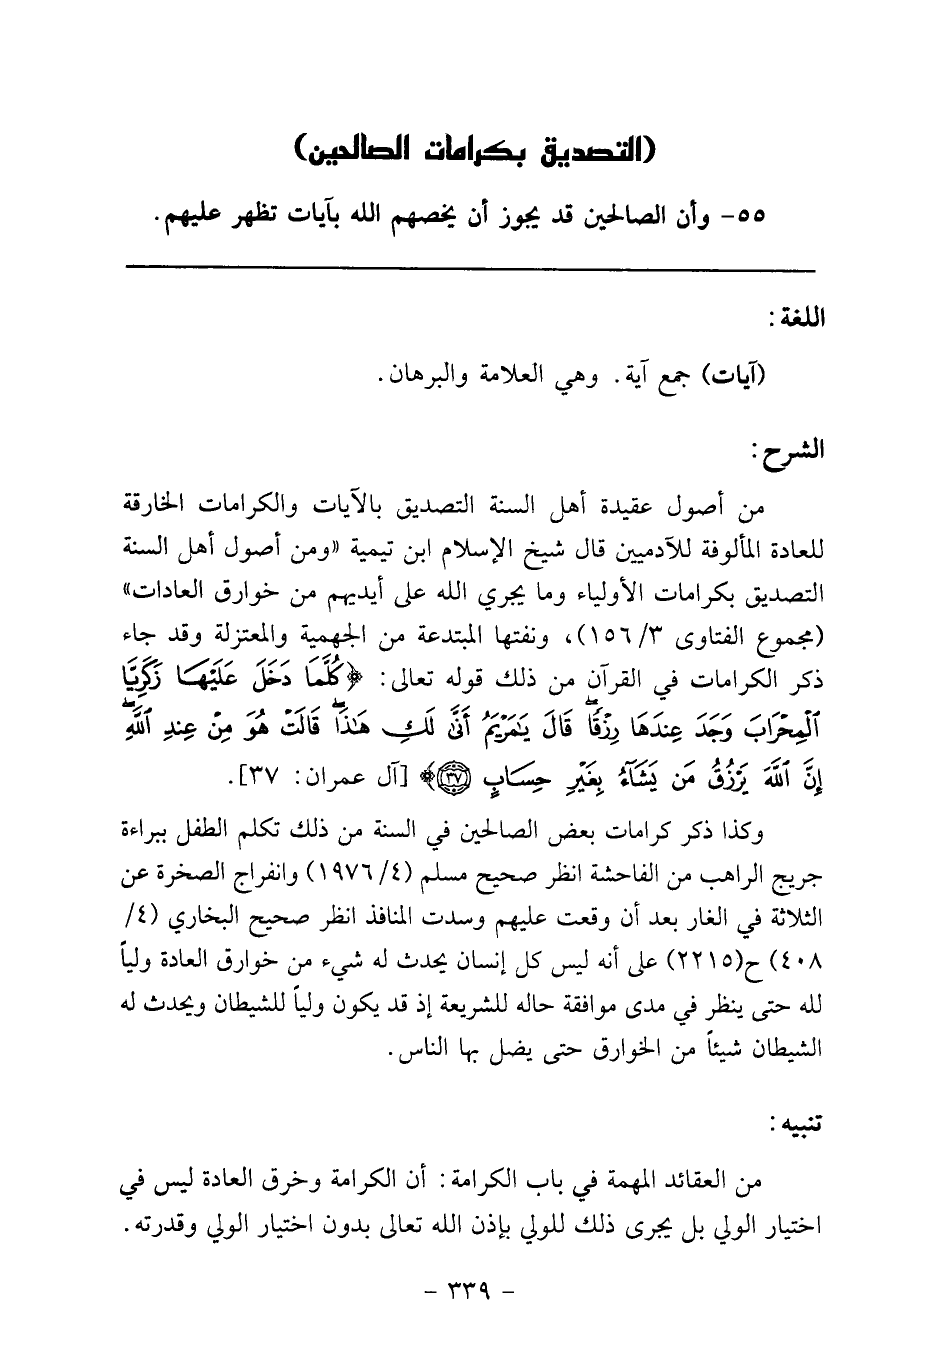 (التصديق بكرامات الصالحين)
٥٥- وأن الصالحين قد يجوز أن يخصهم الله بآيات تظهر عليهم.
اللغة:
(آيات) جمع آية. وهي العلامة والبرهان.
الشرح:
من أصول عقيدة أهل السنة التصديق بالآيات والكرامات الخارقة
للعادة المألوفة للآدميين قال شيخ الإسلام ابن تيمية «ومن أصول أهل السنة
التصديق بكرامات الأولياء وما يجري الله على أيديهم من خوارق العادات»
(مجموع الفتاوى ٣/ ١٥٦)، ونفتها المبتدعة من الجهمية والمعتزلة وقد جاء
ذكر الكرامات في القرآن من ذلك قوله تعالى: ﴿كُلَّمَا دَخَلَ عَلَيْهَا زَكَرِيَّا
ٱلْمِحْرَابَ وَجَدَ عِندَهَا رِزْقًاۖ قَالَ يَٰمَرْيَمُ أَنَّىٰ لَكِ هَٰذَاۖ قَالَتْ هُوَ مِنْ عِندِ ٱللَّهِۖ
إِنَّ ٱللَّهَ يَرْزُقُ مَن يَشَآءُ بِغَيْرِ حِسَابٍ ۝٣٧﴾ [آل عمران: ٣٧].
وكذا ذكر كرامات بعض الصالحين في السنة من ذلك تكلم الطفل ببراءة
جريج الراهب من الفاحشة انظر صحيح مسلم (٤/ ١٩٧٦) وانفراج الصخرة عن
الثلاثة في الغار بعد أن وقعت عليهم وسدت المنافذ انظر صحيح البخاري (٤/
٤٠٨) ح(٢٢١٥) على أنه ليس كل إنسان يحدث له شيء من خوارق العادة ولياً
لله حتى ينظر في مدى موافقة حاله للشريعة إذ قد يكون ولياً للشيطان ويحدث له
الشيطان شيئاً من الخوارق حتى يضل بها الناس.
تنبيه:
من العقائد المهمة في باب الكرامة: أن الكرامة وخرق العادة ليس في
اختيار الولي بل يجرى ذلك للولي بإذن الله تعالى بدون اختيار الولي وقدرته.
- ٣٣٩ -